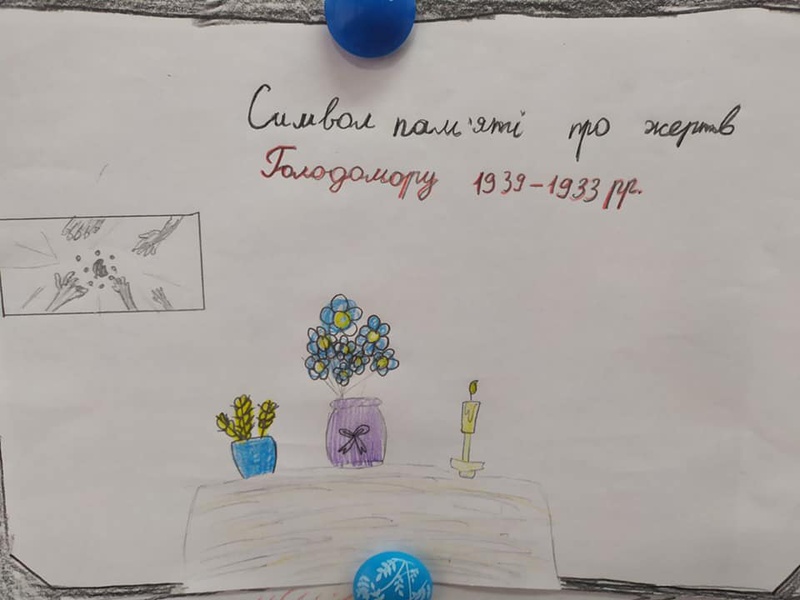 Символ пам'яті про жертв
Голодомору 1939-1933 рр.